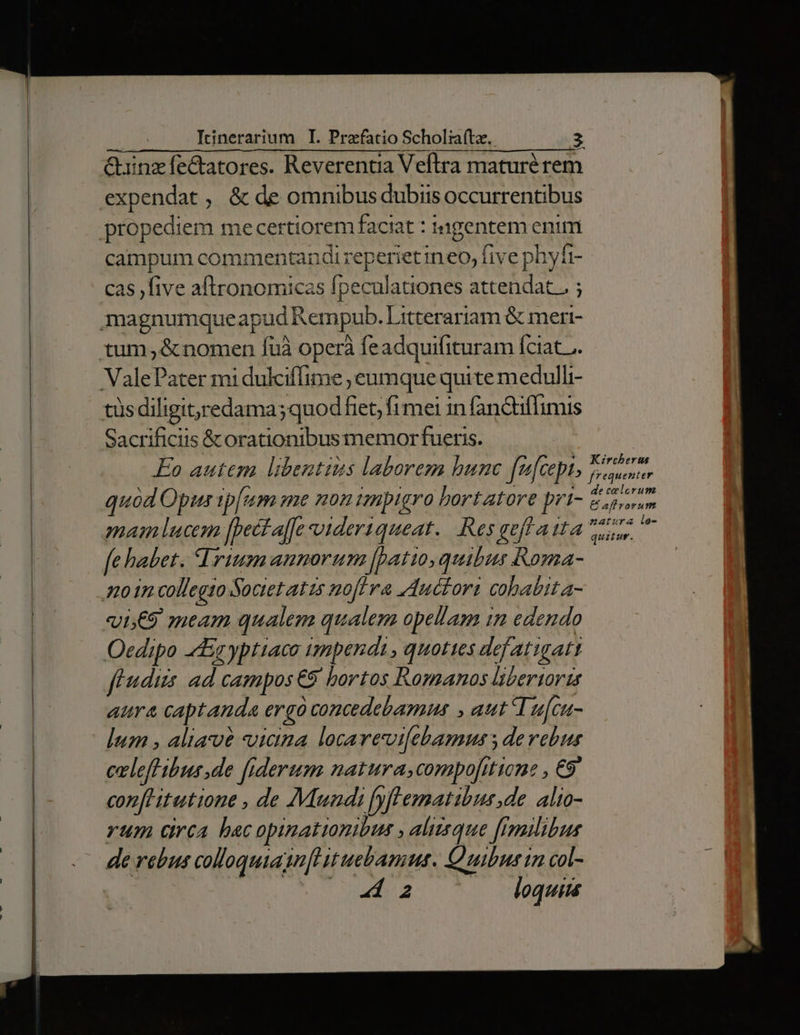 Itinerarium I. Præfatio Scholiaſtæ. 3
& inæ ſectatores. Reverentia Veſtra maturè rem
expendat, & de omnibus dubiis occurrentibus
propediem me certiorem faciat : ingentem enim
campum commentandi reperiet in eo, ſive phyſi-
cas, ſive aſtronomicas ſpeculationes attendat ;
magnumque apud Rempub. Litterariam & meri-
tum, & nomen ſuâ operâ ſe adquiſituram ſciat.
Vale Pater mi dulciſſime, eumque qui te medulli-
tùs diligit, redama; quod fiet, ſi mei in ſanctiſſimis
Sacrificiis & orationibus memor fueris.
Eo autem libentiùs laborem hunc ſuſcepi,
quòd Opus ipſum me non impigro hortatore pri-
mam lucem ſpectaſſe videri queat. Res geſta ita
ſe habet. Trium annorum ſpatio, quibus Roma-
no in collegio Societatis noſtræ Auctori cohabita-
vi, & meam qualem qualem opellam in edendo
Oedipo Ægyptiaco impendi, quoties defatigati
ſtudiis ad campos & hortos Romanos liberioris
auræ captandæ ergò concedebamus, aut Tuſcu-
lum, aliavè vicina loca reviſebamus; de rebus
cæleſtibus, de ſiderum natura, compoſitione, &
conſtitutione, de Mundi ſyſtematibus, de alio-
rum circa hæc opinationibus, aliisque ſimilibus
de rebus colloquia inſtituebamus. Quibus in col-
A 2 loquiis
Kircherus
frequenter
de cœlorum
& aſtrorum
natura lo-
quitur.